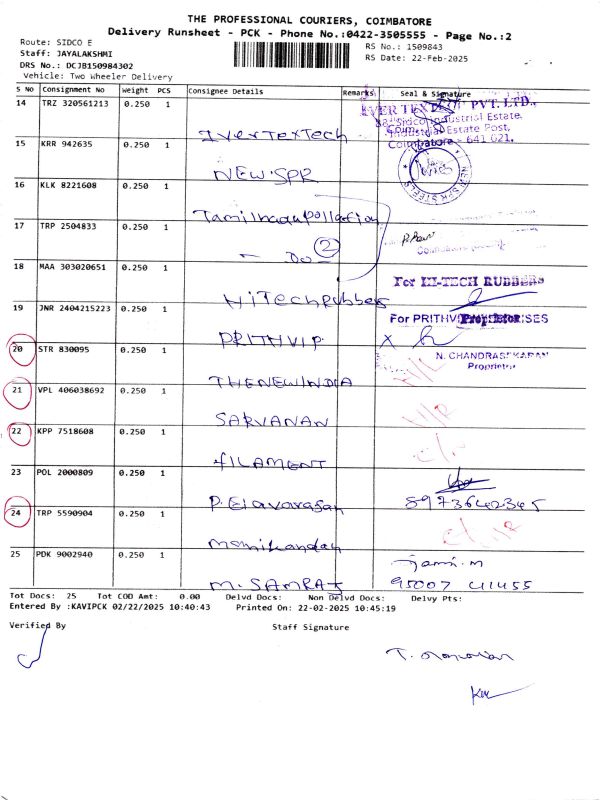 THE PROFESSIONAL COURIERS, COIMBATORE
Delivery Runsheet - PCK - Phone No.:0422-3505555 - Page No.:2
Route: SIDCO E
Staff: JAYALAKSHMI
DRS No.: DCJB150984302
Vehicle: Two Wheeler Delivery
RS No.: 1509843
RS Date: 22-Feb-2025
S NO Consignment No Weight PCS Consignee Details Remarks Seal & Signature
14 TRZ 320561213 0.250 1 IverTexTech
IVER TEXTECH PVT. LTD.,
Sidco Industrial Estate,
Industrial Estate Post,
Coimbatore - 641 021.
15 KRR 942635 0.250 1 NEW.SPR
NEW SPR STEELS
16 KLK 8221608 0.250 1 Tamilnadupollation
17 TRP 2504833 0.250 1 - Do - 2
18 MAA 303020651 0.250 1 HiTechRubbers
For HI-TECH RUBBERS
Proprietor
19 JNR 2404215223 0.250 1 PRITHVIP
For PRITHVI ENTERPRISES
N. CHANDRASEKARAN
Proprietor
20 STR 830095 0.250 1 THENEWINDIA
21 VPL 406038692 0.250 1 SARVANAN
22 KPP 7518608 0.250 1 FILAMENT
23 POL 2000809 0.250 1 P. Elavarasan
8973642345
24 TRP 5590904 0.250 1 manikandan
25 PDK 9002940 0.250 1 M. SAMRAJ
95007 41455
Tot Docs: 25 Tot COD Amt: 0.00 Delvd Docs: Non Delvd Docs: Delvy Pts:
Entered By :KAVIPCK 02/22/2025 10:40:43 Printed On: 22-02-2025 10:45:19
Verified By Staff Signature